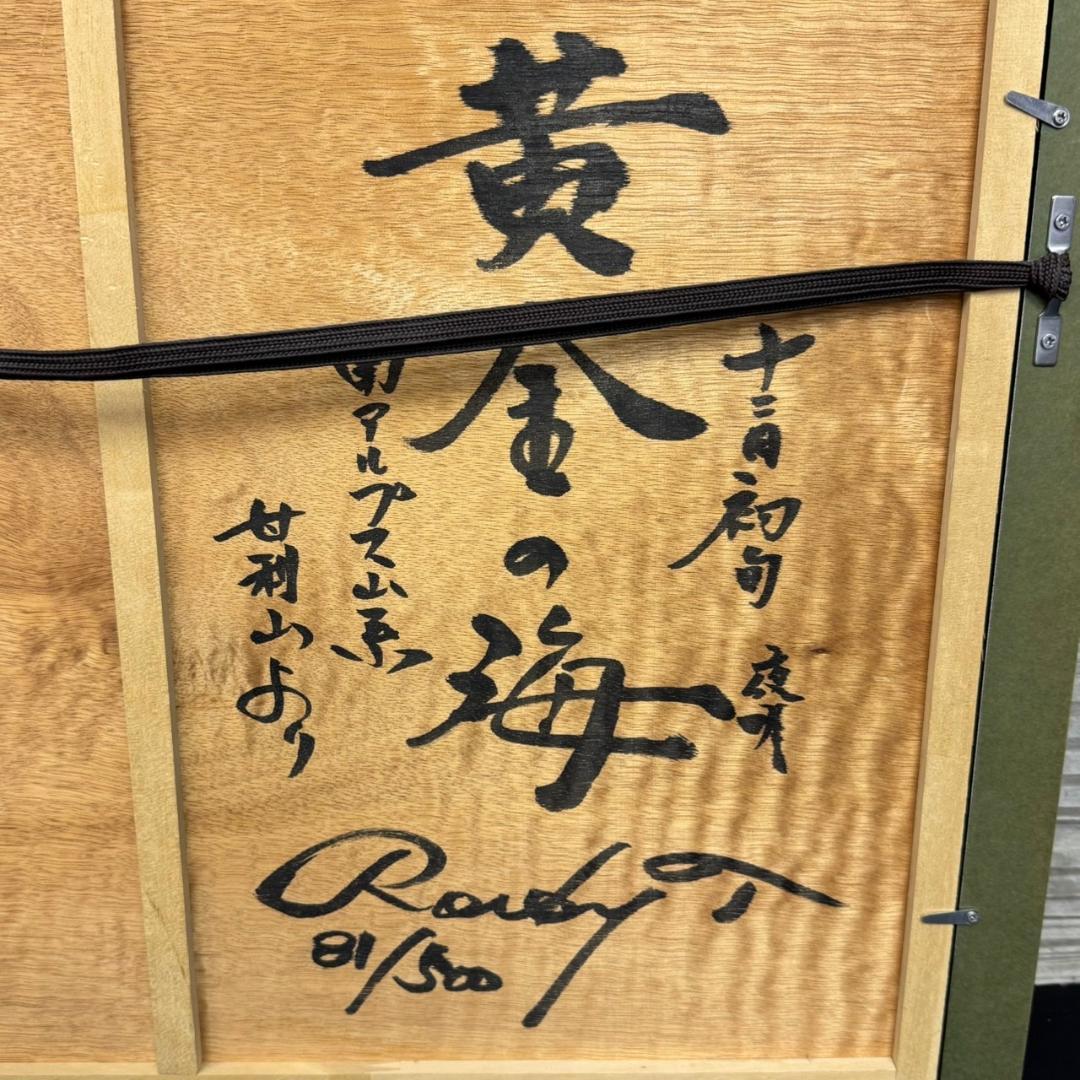 十二月初旬 夜明
黄金の海
南アルプス山系
甘利山より
81/500